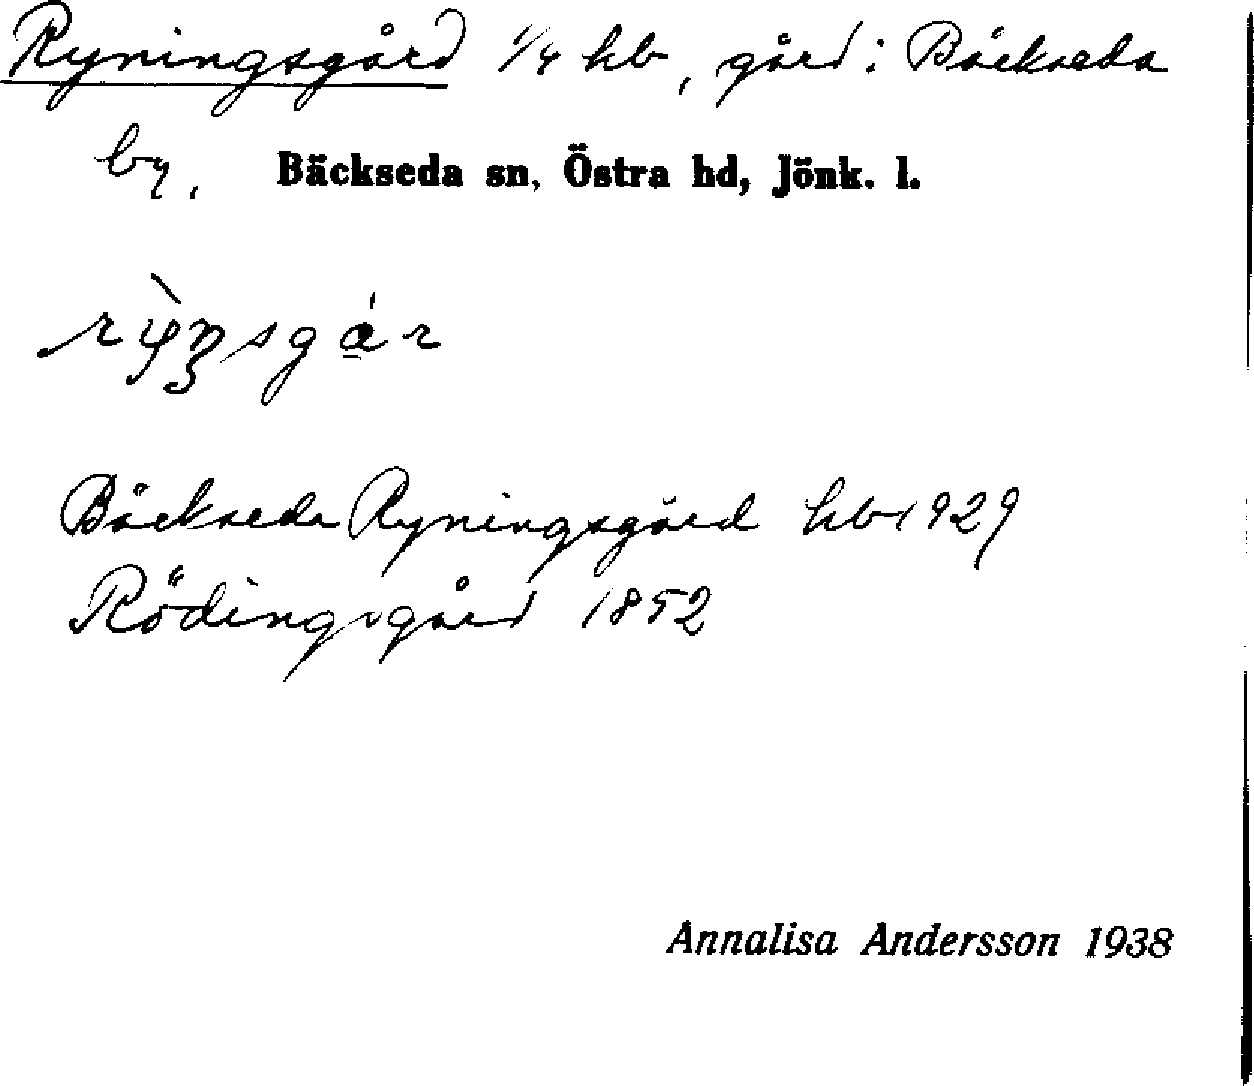 Ryningsgård 1/4 hb, gård i Bäckseda
by, Bäckseda sn, Östra hd, Jönk. l.
Bäckseda Ryningsgård hb 1929
Rödingsgård 1852
Annalisa Andersson 1938